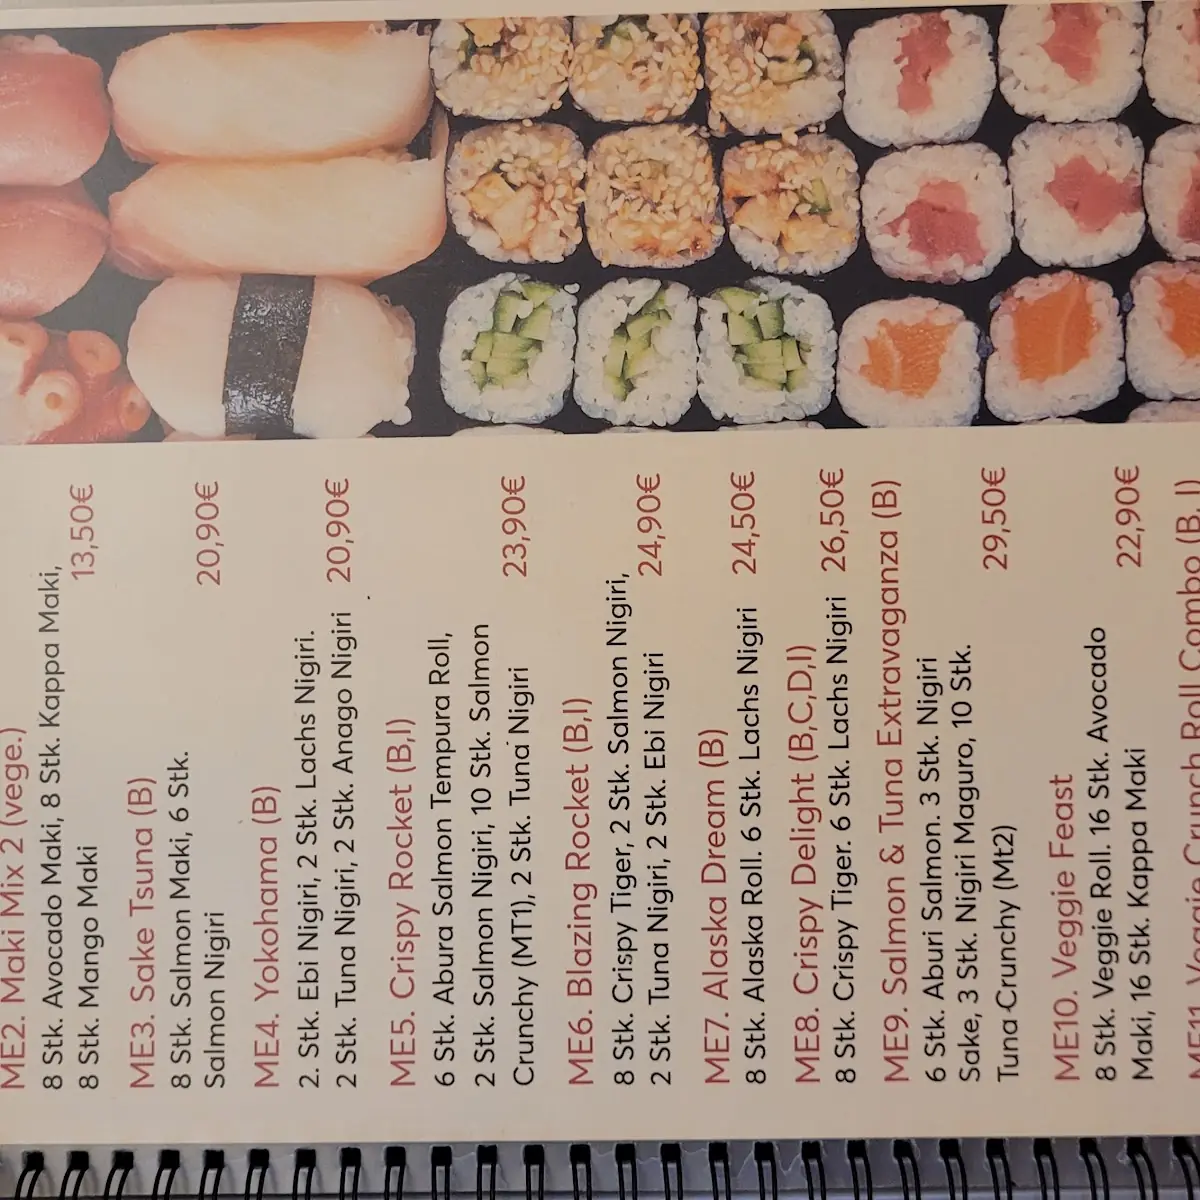 ME2. Maki Mix 2 (vege.)
8 Stk. Avocado Maki, 8 Stk. Kappa Maki,
8 Stk. Mango Maki 13,50€
ME3. Sake Tsuna (B)
8 Stk. Salmon Maki, 6 Stk.
Salmon Nigiri 20,90€
ME4. Yokohama (B)
2. Stk. Ebi Nigiri, 2 Stk. Lachs Nigiri.
2 Stk. Tuna Nigiri, 2 Stk. Anago Nigiri 20,90€
ME5. Crispy Rocket (B,I)
6 Stk. Abura Salmon Tempura Roll,
2 Stk. Salmon Nigiri, 10 Stk. Salmon
Crunchy (MT1), 2 Stk. Tuna Nigiri 23,90€
ME6. Blazing Rocket (B,I)
8 Stk. Crispy Tiger, 2 Stk. Salmon Nigiri,
2 Stk. Tuna Nigiri, 2 Stk. Ebi Nigiri 24,90€
ME7. Alaska Dream (B)
8 Stk. Alaska Roll. 6 Stk. Lachs Nigiri 24,50€
ME8. Crispy Delight (B,C,D,I)
8 Stk. Crispy Tiger. 6 Stk. Lachs Nigiri 26,50€
ME9. Salmon & Tuna Extravaganza (B)
6 Stk. Aburi Salmon. 3 Stk. Nigiri
Sake, 3 Stk. Nigiri Maguro, 10 Stk.
Tuna Crunchy (Mt2) 29,50€
ME10. Veggie Feast
8 Stk. Veggie Roll. 16 Stk. Avocado
Maki, 16 Stk. Kappa Maki 22,90€
ME11. Veggie Crunch Roll Combo (B, I)